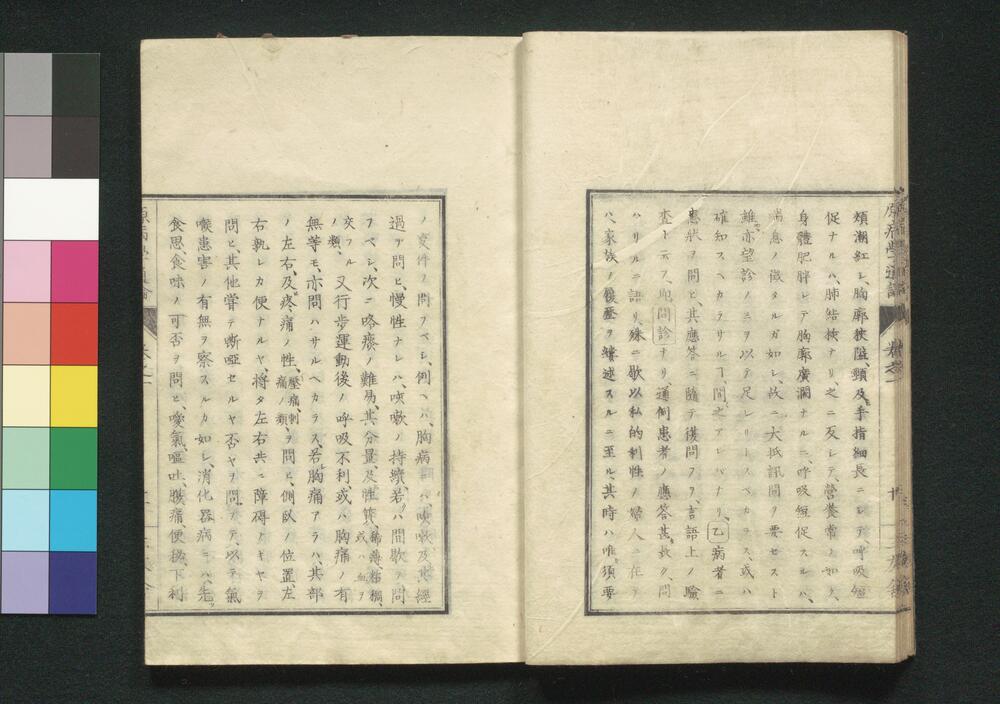 頬潮紅シ、胸廓狭隘、頸及手指細長ニシテ、呼吸短
促ナルハ、肺結挾ナリ、之ニ反シテ、営養常ノ如ク、
身體肥胖シテ胸廓廣濶ナルニ、呼吸短促スルハ、
喘息ノ徴タルガ如シ、故ニ大抵訊問ヲ要セスト
雖亦望診ノミヲ以テ足レリースベカラス、或ハ
確知スヘカラサルヿ、間之アレバナリ、乙病者ニ
患状ヲ問ヒ、其應答ニ随テ復問フヲ、言語上ノ驗
査ト云フ、即問診ナリ、通例患者ノ應答甚タ、問
ハ、家族ノ履歴ヲ縷述スルニ至ル、其時ハ唯須要
ノ文件ノ問フベシ、例ヘハ、胸病ニハ、咳嗽及其經
過ヲ問ヒ、慢性ナレハ、咳嗽ノ持續、若ハ間歇ヲ問
フベシ、次ニ咯痰ノ難易、其分量、及性質、稀薄、粘稠、或ハ血ヲ
交フルノ類、又行歩運動後ノ呼吸不利、或ハ胸痛ノ有
無等モ、亦問ハサルヘカラス、若胸痛アラハ、其部
ノ左右、及疼痛ノ性、壓痛、刺痛ノ類、ヲ問ヒ、側臥ノ位置、左
右孰レカ便ナルヤ、将タ左右共ニ障碍ナキヤヲ
問ヒ、其他甞テ嘶啞セルヤ否ヤヲ問フテ、以テ氣
喉患害ノ有無ヲ察スルカ如シ、消化器病ニハ、先
食思、食味ノ可否ヲ問ヒ、噯氣、嘔吐、腹痛、便秘、下利